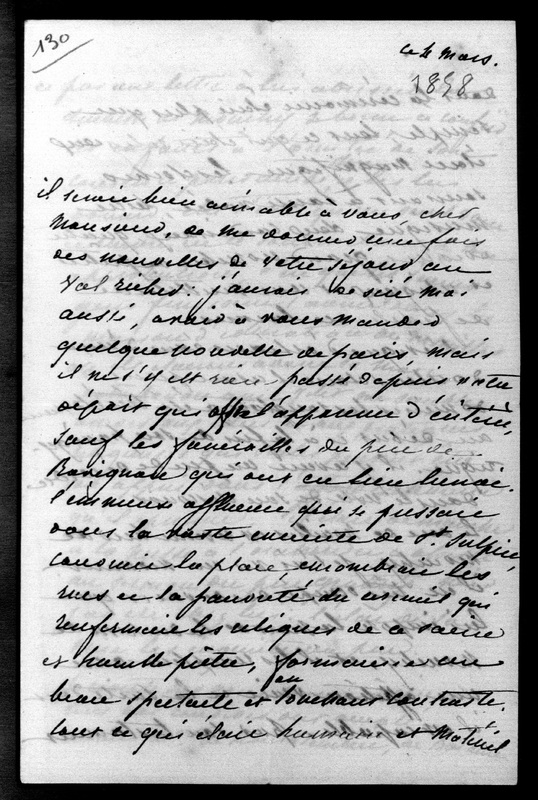 130
ce 4 Mars.
1858
il seroit bien aimable à vous, cher
Monsieur, de me donner une fois
des nouvelles de votre séjour au
Val richer: j'aurois desiré moi
aussi, avoir à vous mander
quelque nouvelle de paris, mais
il ne s'y est rien passé depuis votre
départ qui offre l'apparence d'intérêt,
sauf les funérailles du père de
Ravignan qui ont eu lieu hier.
l'immense affluence qui se pressoit
sous la vaste enceinte de St Sulpice,
couvroit la place, encombroit les
rues et la pauvreté du cercueil qui
renfermoit les reliques de ce saint
et humble prêtre, formoient un
beau spectacle et un touchant contraste.
tout ce qui étoit humain et matériel